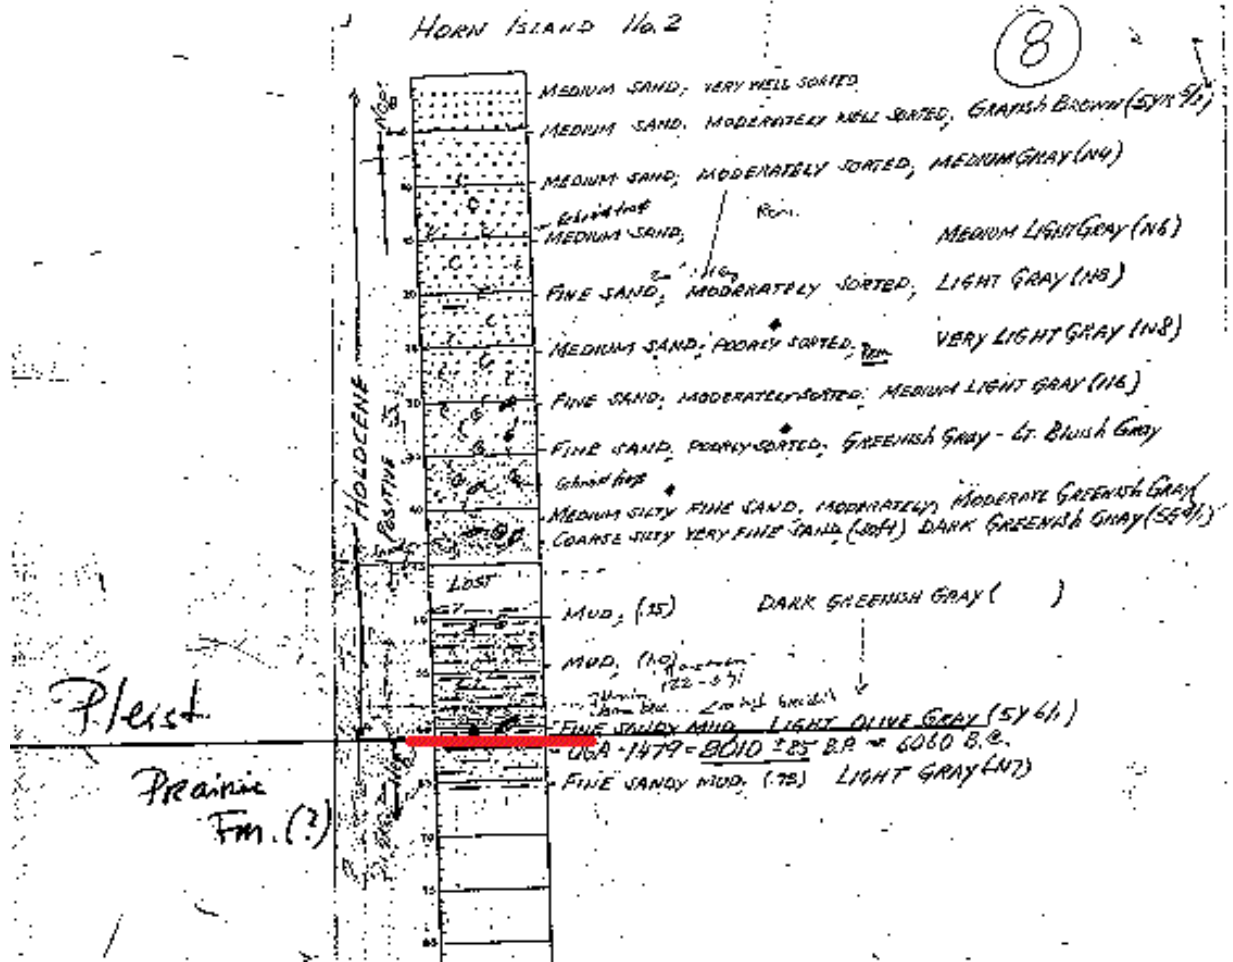 HORN ISLAND No. 2
8
MEDIUM SAND; VERY WELL SORTED
MEDIUM SAND; MODERATELY WELL SORTED; GRAYISH BROWN (5YR
MEDIUM SAND; MODERATELY SORTED; MEDIUM GRAY (N4)
MEDIUM SAND; MEDIUM LIGHT GRAY (N6)
FINE SAND; MODERATELY SORTED; LIGHT GRAY (N8)
MEDIUM SAND; POORLY SORTED; VERY LIGHT GRAY (N8)
FINE SAND; MODERATELY SORTED; MEDIUM LIGHT GRAY (N6)
FINE SAND; POORLY SORTED; GREENISH GRAY - LT. BLUISH GRAY
MEDIUM SILTY FINE SAND, MODERATELY; MODERATE GREENISH GRAY
COARSE SILTY VERY FINE SAND (soft) DARK GREENISH GRAY
HOLOCENE
POSITIVE
15
20
30
40
45
LOST
MUD; (.25) DARK GREENISH GRAY ( )
MUD; (1.0)
FINE SANDY MUD LIGHT OLIVE GRAY (5Y 6/1)
UGA-1479 = 8010 ± 85 B.P. = 6060 B.C.
FINE SANDY MUD; (.75) LIGHT GRAY (N7)
70
75
Pleist
Prairie
Fm. (?)